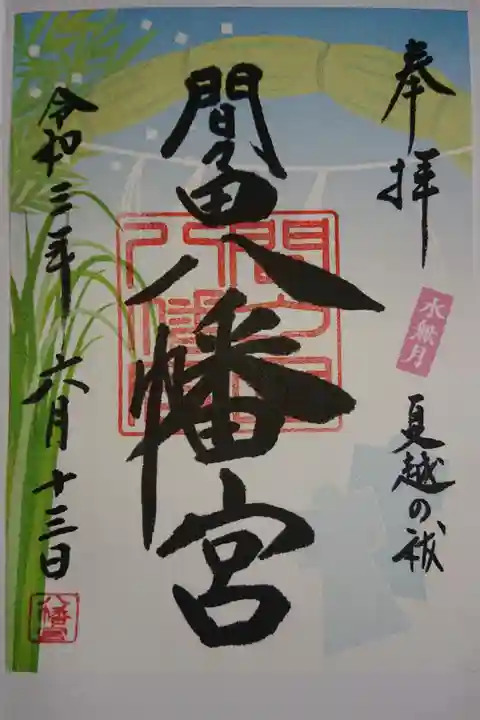 奉拝
水無月
夏越の祓
間々田八幡宮
令和三年 六月十三日